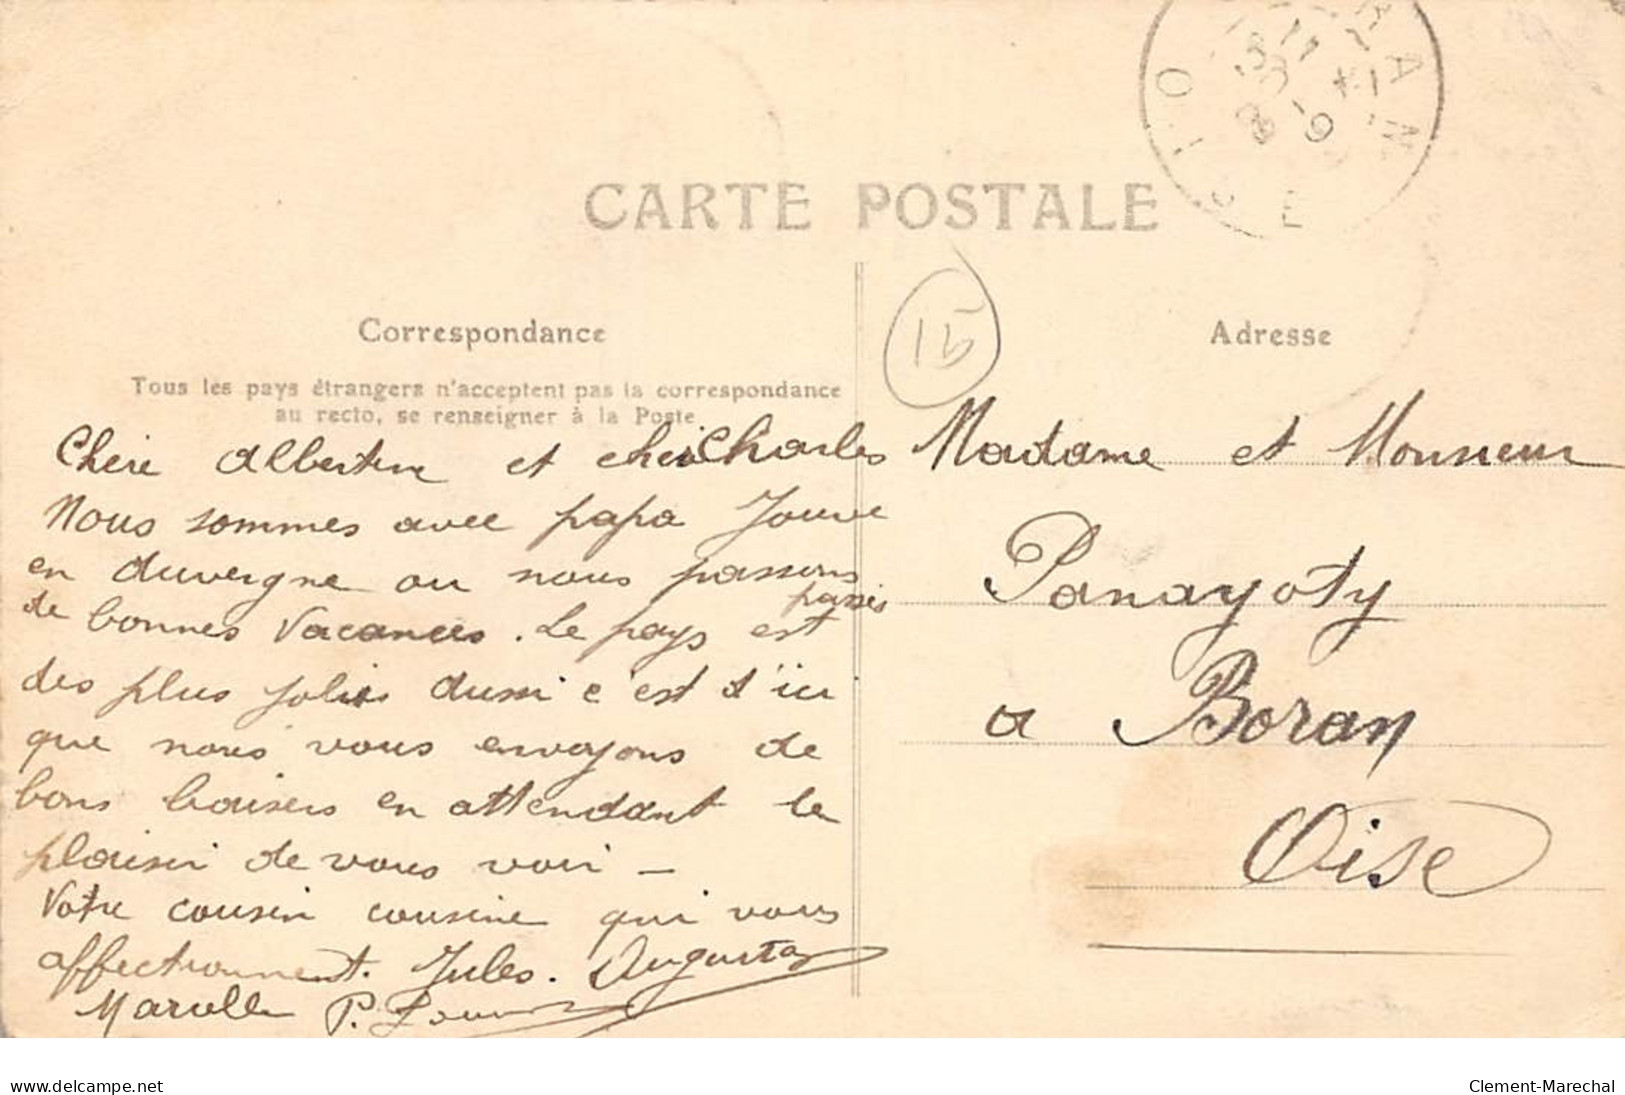 CARTE POSTALE
15
Correspondance
Tous les pays étrangers n'acceptent pas la correspondance
au recto, se renseigner à la Poste
Chère Albertine et cher Charles
Nous sommes avec papa Jouve
en Auvergne ou nous passons
passés
de bonnes vacances. Le pays est
des plus jolies aussi c'est d'ici
que nous vous envoyons de
bons baisers en attendant le
plaisir de vous voir —
Votre cousin cousine qui vous
affectionnent. Jules. Augusta
Marcelle P.
Adresse
Madame et Monsieur
Panayoty
a Boran
Oise
BORAN
OISE
delcampe.net
Clement-Marechal